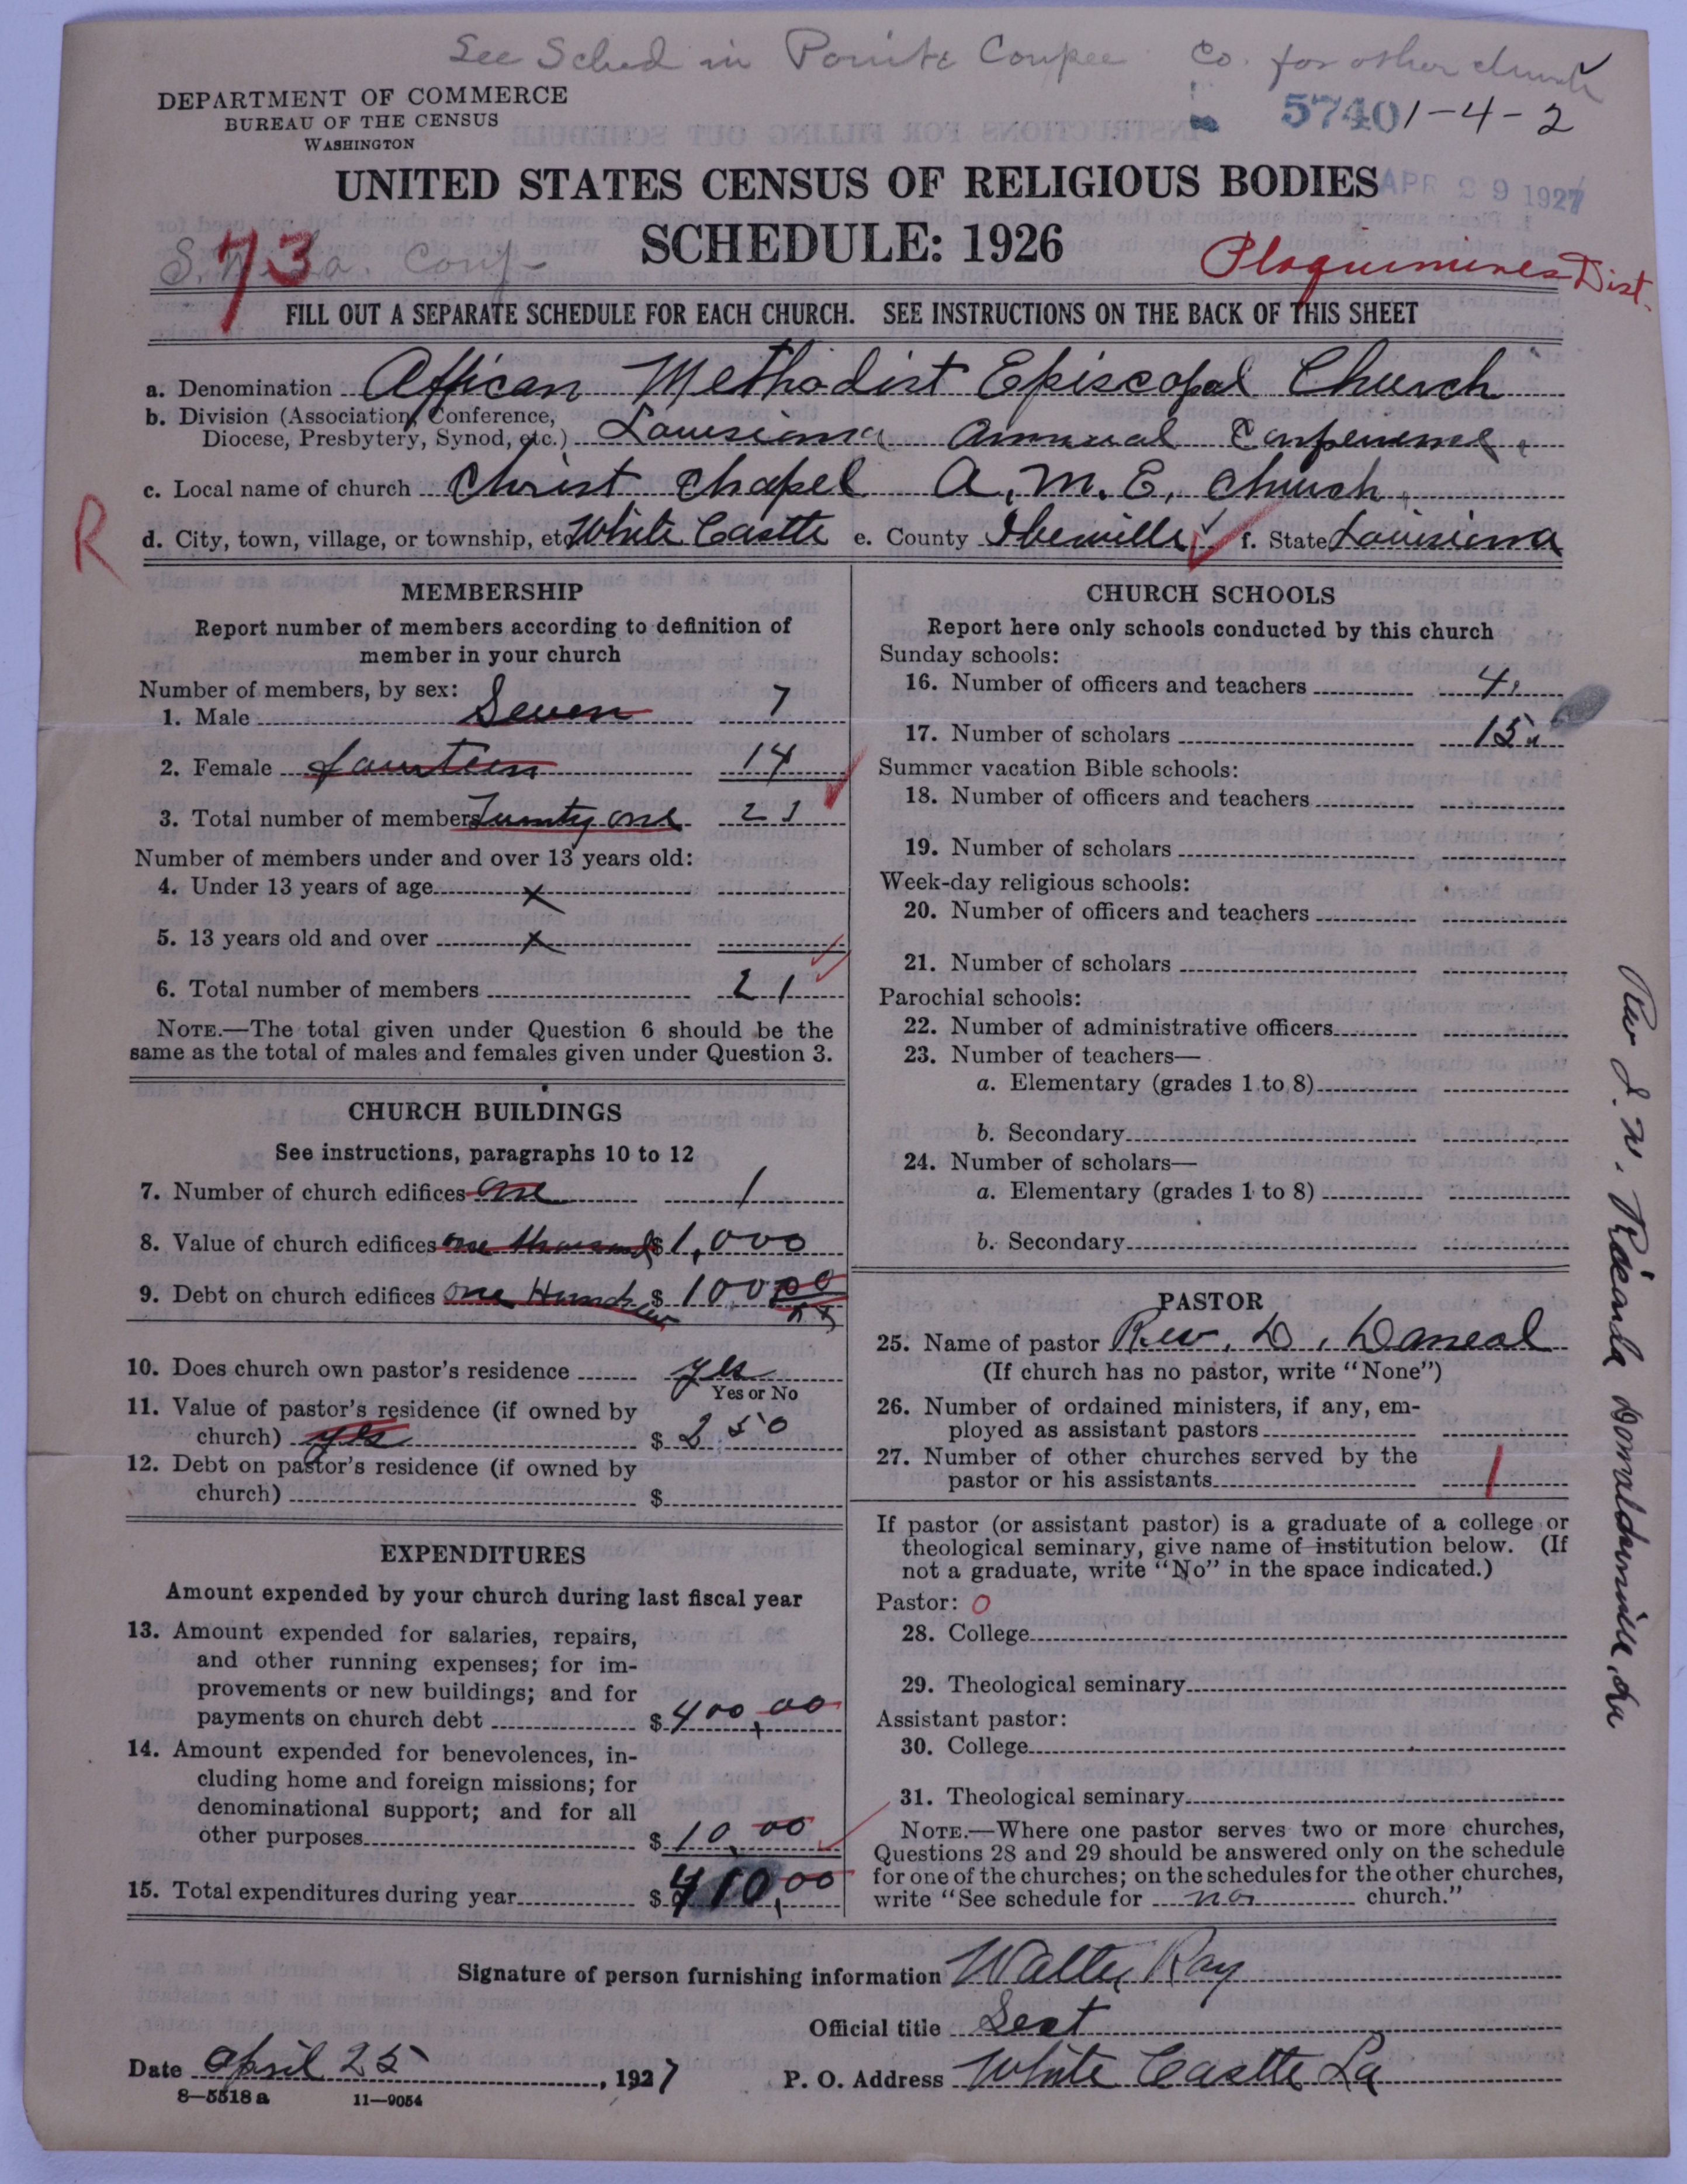 See Sched in Pointe Coupee Co. for other church
DEPARTMENT OF COMMERCE
BUREAU OF THE CENSUS
WASHINGTON
5740 1-4-2
UNITED STATES CENSUS OF RELIGIOUS BODIES
APR 29 1927
SCHEDULE: 1926
73
S. W. La. Conf
Plaquimines Dist.
FILL OUT A SEPARATE SCHEDULE FOR EACH CHURCH. SEE INSTRUCTIONS ON THE BACK OF THIS SHEET
a. Denomination African Methodist Episcopal Church
b. Division (Association, Conference,
Diocese, Presbytery, Synod, etc.) Louisiana Annual Conference
c. Local name of church Christ Chapel A. M. E. Church
R
d. City, town, village, or township, etc White Castle e. County Iberville f. State Louisiana
MEMBERSHIP
Report number of members according to definition of
member in your church
Number of members, by sex:
1. Male Seven 7
2. Female fourteen 14
3. Total number of members Twenty one 21
Number of members under and over 13 years old:
4. Under 13 years of age x
5. 13 years old and over x
6. Total number of members 21
NOTE.—The total given under Question 6 should be the
same as the total of males and females given under Question 3.
CHURCH BUILDINGS
See instructions, paragraphs 10 to 12
7. Number of church edifices one 1
8. Value of church edifices one thousand $ 1,000
9. Debt on church edifices one Hundred $ 100.00
10. Does church own pastor's residence yes
Yes or No
11. Value of pastor's residence (if owned by
church) yes $ 250
12. Debt on pastor's residence (if owned by
church) $
EXPENDITURES
Amount expended by your church during last fiscal year
13. Amount expended for salaries, repairs,
and other running expenses; for im-
provements or new buildings; and for
payments on church debt $ 400.00
14. Amount expended for benevolences, in-
cluding home and foreign missions; for
denominational support; and for all
other purposes $ 10.00
15. Total expenditures during year $ 410.00
CHURCH SCHOOLS
Report here only schools conducted by this church
Sunday schools:
16. Number of officers and teachers 4
17. Number of scholars 15
Summer vacation Bible schools:
18. Number of officers and teachers
19. Number of scholars
Week-day religious schools:
20. Number of officers and teachers
21. Number of scholars
Parochial schools:
22. Number of administrative officers
23. Number of teachers—
a. Elementary (grades 1 to 8)
b. Secondary
24. Number of scholars—
a. Elementary (grades 1 to 8)
b. Secondary
PASTOR
25. Name of pastor Rev. D. Daneal
(If church has no pastor, write "None")
26. Number of ordained ministers, if any, em-
ployed as assistant pastors
27. Number of other churches served by the
pastor or his assistants 1
If pastor (or assistant pastor) is a graduate of a college or
theological seminary, give name of institution below. (If
not a graduate, write "No" in the space indicated.)
Pastor: 0
28. College
29. Theological seminary
Assistant pastor:
30. College
31. Theological seminary
NOTE.—Where one pastor serves two or more churches,
Questions 28 and 29 should be answered only on the schedule
for one of the churches; on the schedules for the other churches,
write "See schedule for no church."
Signature of person furnishing information Walter Ray
Official title Sect
Date April 25, 1927 P. O. Address White Castle La
8—5518a 11—9054
Rev J. W. Donaldsonville, La